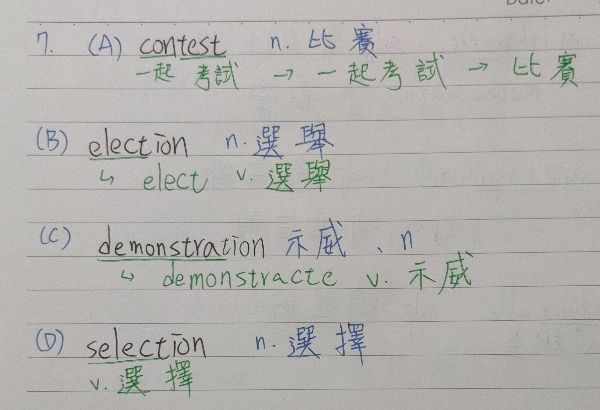 7. (A) contest n. 比賽
一起 考試 → 一起考試 → 比賽
(B) election n. 選舉
↳ elect v. 選舉
(C) demonstration 示威、n
↳ demonstracte v. 示威
(D) selection n. 選擇
v. 選擇